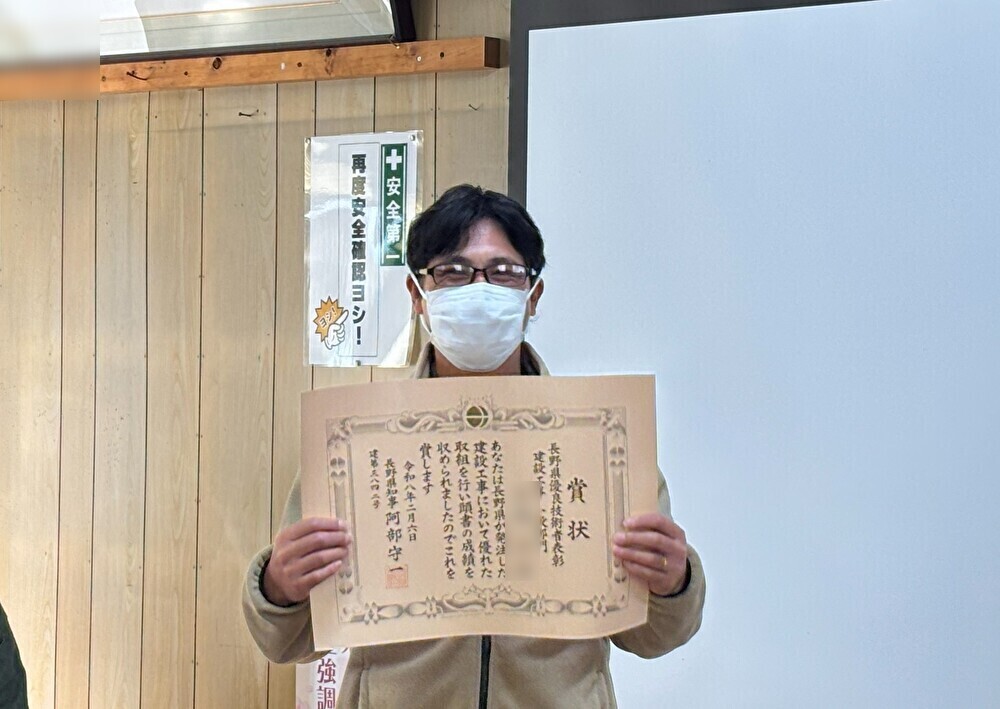 安全第一
再度安全確認ヨシ！
ヨシ！
賞状
長野県優良技術者表彰
建設工事
部門
あなたは長野県が発注した
建設工事において優れた
取組を行い頭書の成績を
収められましたのでこれを
賞します
令和八年二月六日
長野県知事 阿部守一
建第三八四二号
強調